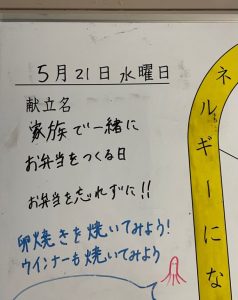 5月21日水曜日
献立名
家族で一緒に
お弁当をつくる日
お弁当を忘れずに!!
卵焼きを焼いてみよう!
ウインナーも焼いてみよう
ネルギーにな